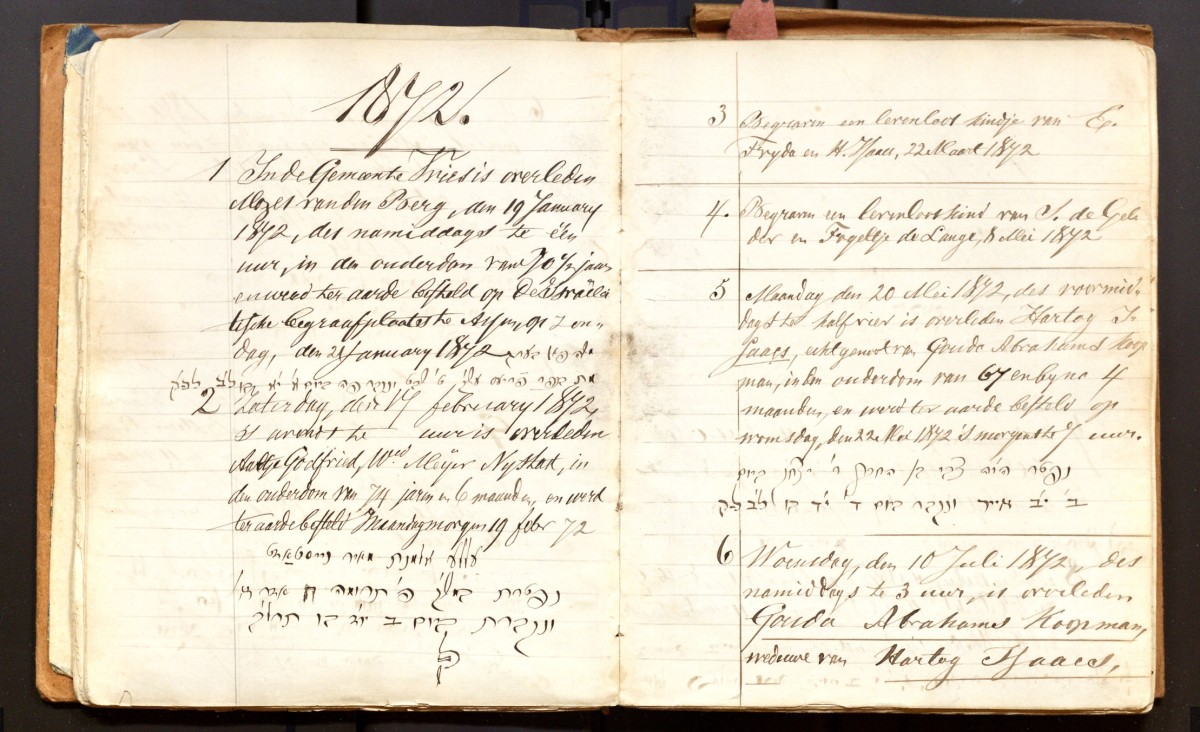 1872.
1 In de Gemeente Vries is overleden
Mozes van den Berg, den 19 January
1872, des namiddags te één
uur, in den ouderdom van 70½ jaar
en werd ter aarde besteld op De Israëli
tische begraafplaats te Assen, op Zon„
dag, den 21 January 1872
2 Zaterdag, den 17 february 1872,
's avonds te uur is overleden
Aaltje Godfried, Wed Meijer Nystad, in
den ouderdom van 74 jaren en 6 maanden, en werd
ter aarde besteld Maandagmorgen 19 febr 72
אלמנת מאיר
נפטרת
ונקברת ביום ב
3 Begraven een levenloos kindje van E.
Fryda en H. Isaacs, 22 Maart 1872
4. Begraven een levenloos kind van S. de Gel„
der en Frijeltje de Lange, 8 Mei 1872
5 Maandag den 20 Mei 1872, des voormid„
dags te half vier is overleden Hartog I„
saacs, echtgenoot van Gouda Abrahams Koop
man, in den ouderdom van 67 en byna 4
maanden, en werd ter aarde besteld op
woensdag, den 22e Mei 1872 's morgens te 7 uur.
נפטר היה צבי בן ר' יצחק ביום
ב' י"ב אייר ונקבר ביום ד' י"ד בו
6 Woensdag, den 10 Juli 1872, des
namiddags te 3 uur, is overleden
Gouda Abrahams Koopman,
weduwe van Hartog Isaacs,